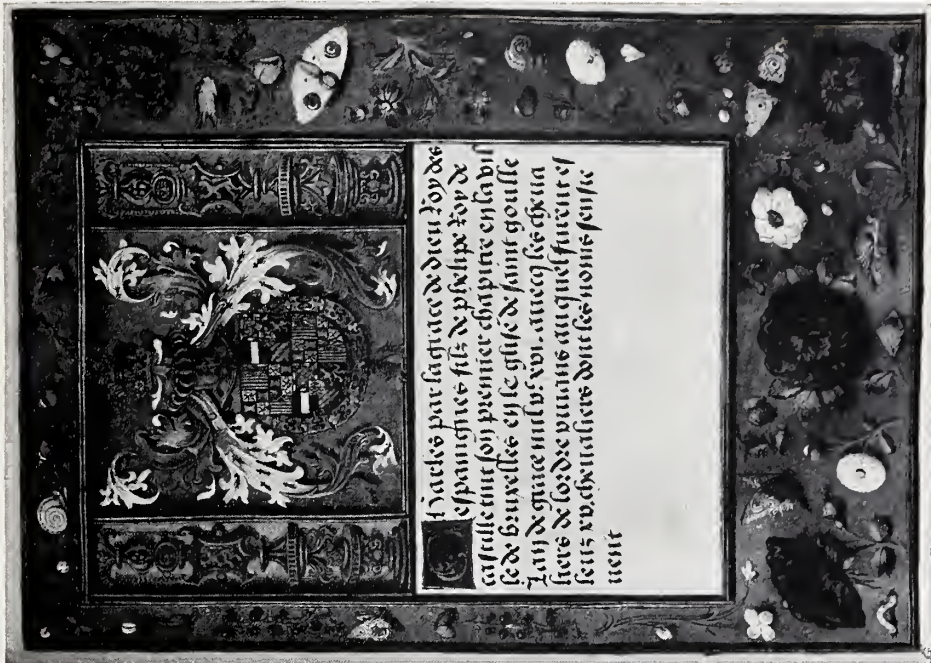 Charles par la grace de dieu Roy des
espaingnes filz de phelipe roy de
castille tint son premier chapitre en la vil
le de bruxelles en le glise de saint goulle
Lan de grace mil vc xvi. auecq les cheua
liers de lordre viuans auquel furent esl
leuz xv cheualiers dont les noms sensie
uent